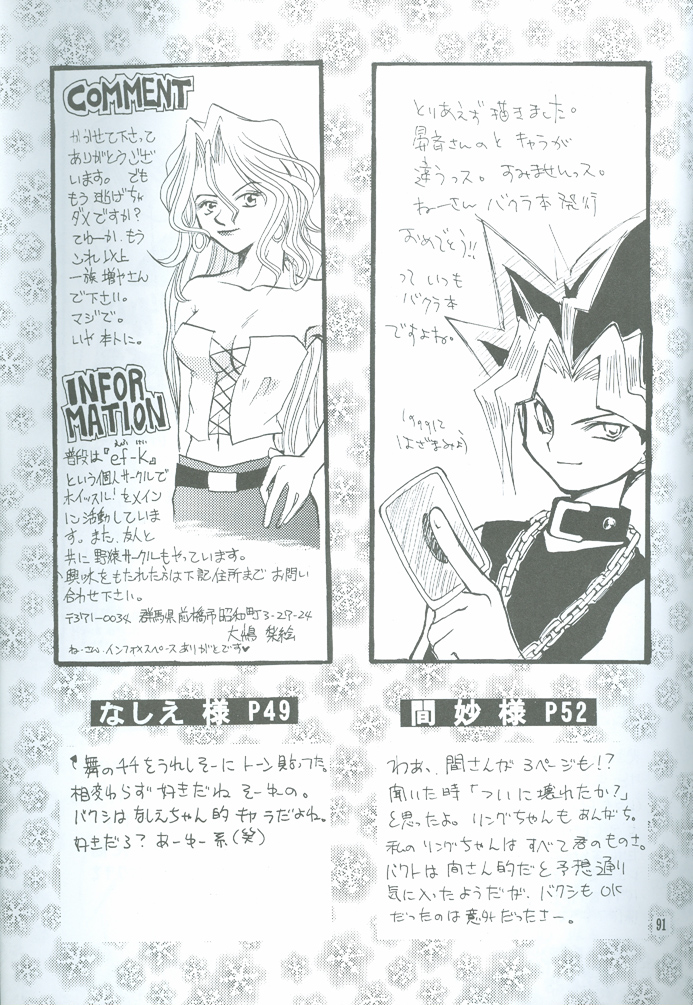 COMMENT
かかせて下さって
ありがとうござ
います。でも
もう逃げちゃ
ダメですか?
てゆーか、もう
これ以上
一族増やさん
で下さい。
マジで。
いや本トに。
INFOR
MATION
普段は『ef-K』
という個人サークルで
ホイッスル!をメイン
に活動していま
す。また、友人と
共に野猿サークルもやっています。
興味をもたれた方は下記住所までお問い
合わせ下さい。
〒371-0034 群馬県前橋市昭和町3-27-24
大嶋 梨絵
ねーさん、インフォメスペースありがとです♥
なしえ 様 P49
舞のチチをうれしそーにトーン貼ってた。
相変わらず好きだね そーゆーの。
バクシはなしえちゃん的キャラだよね。
好きだろ? あーゆー系(笑)
とりあえず描きました。
昴音さんのと キャラが
違うっス。すみませんっス。
ねーさん バクラ本発行
おめでとう!!
って いつも
バクラ本
ですよね。
1999.12
はざまみょう
間 妙 様 P52
わあ、間さんが 3ページも!?
聞いた時「ついに壊れたか?」
と思ったよ。リングちゃんもあんがち。
私のリングちゃんは すべて君のものさ。
バクトは間さん的だと予想通り
気に入ったようだが、バクシもOK
だったのは意外だったさー。
91